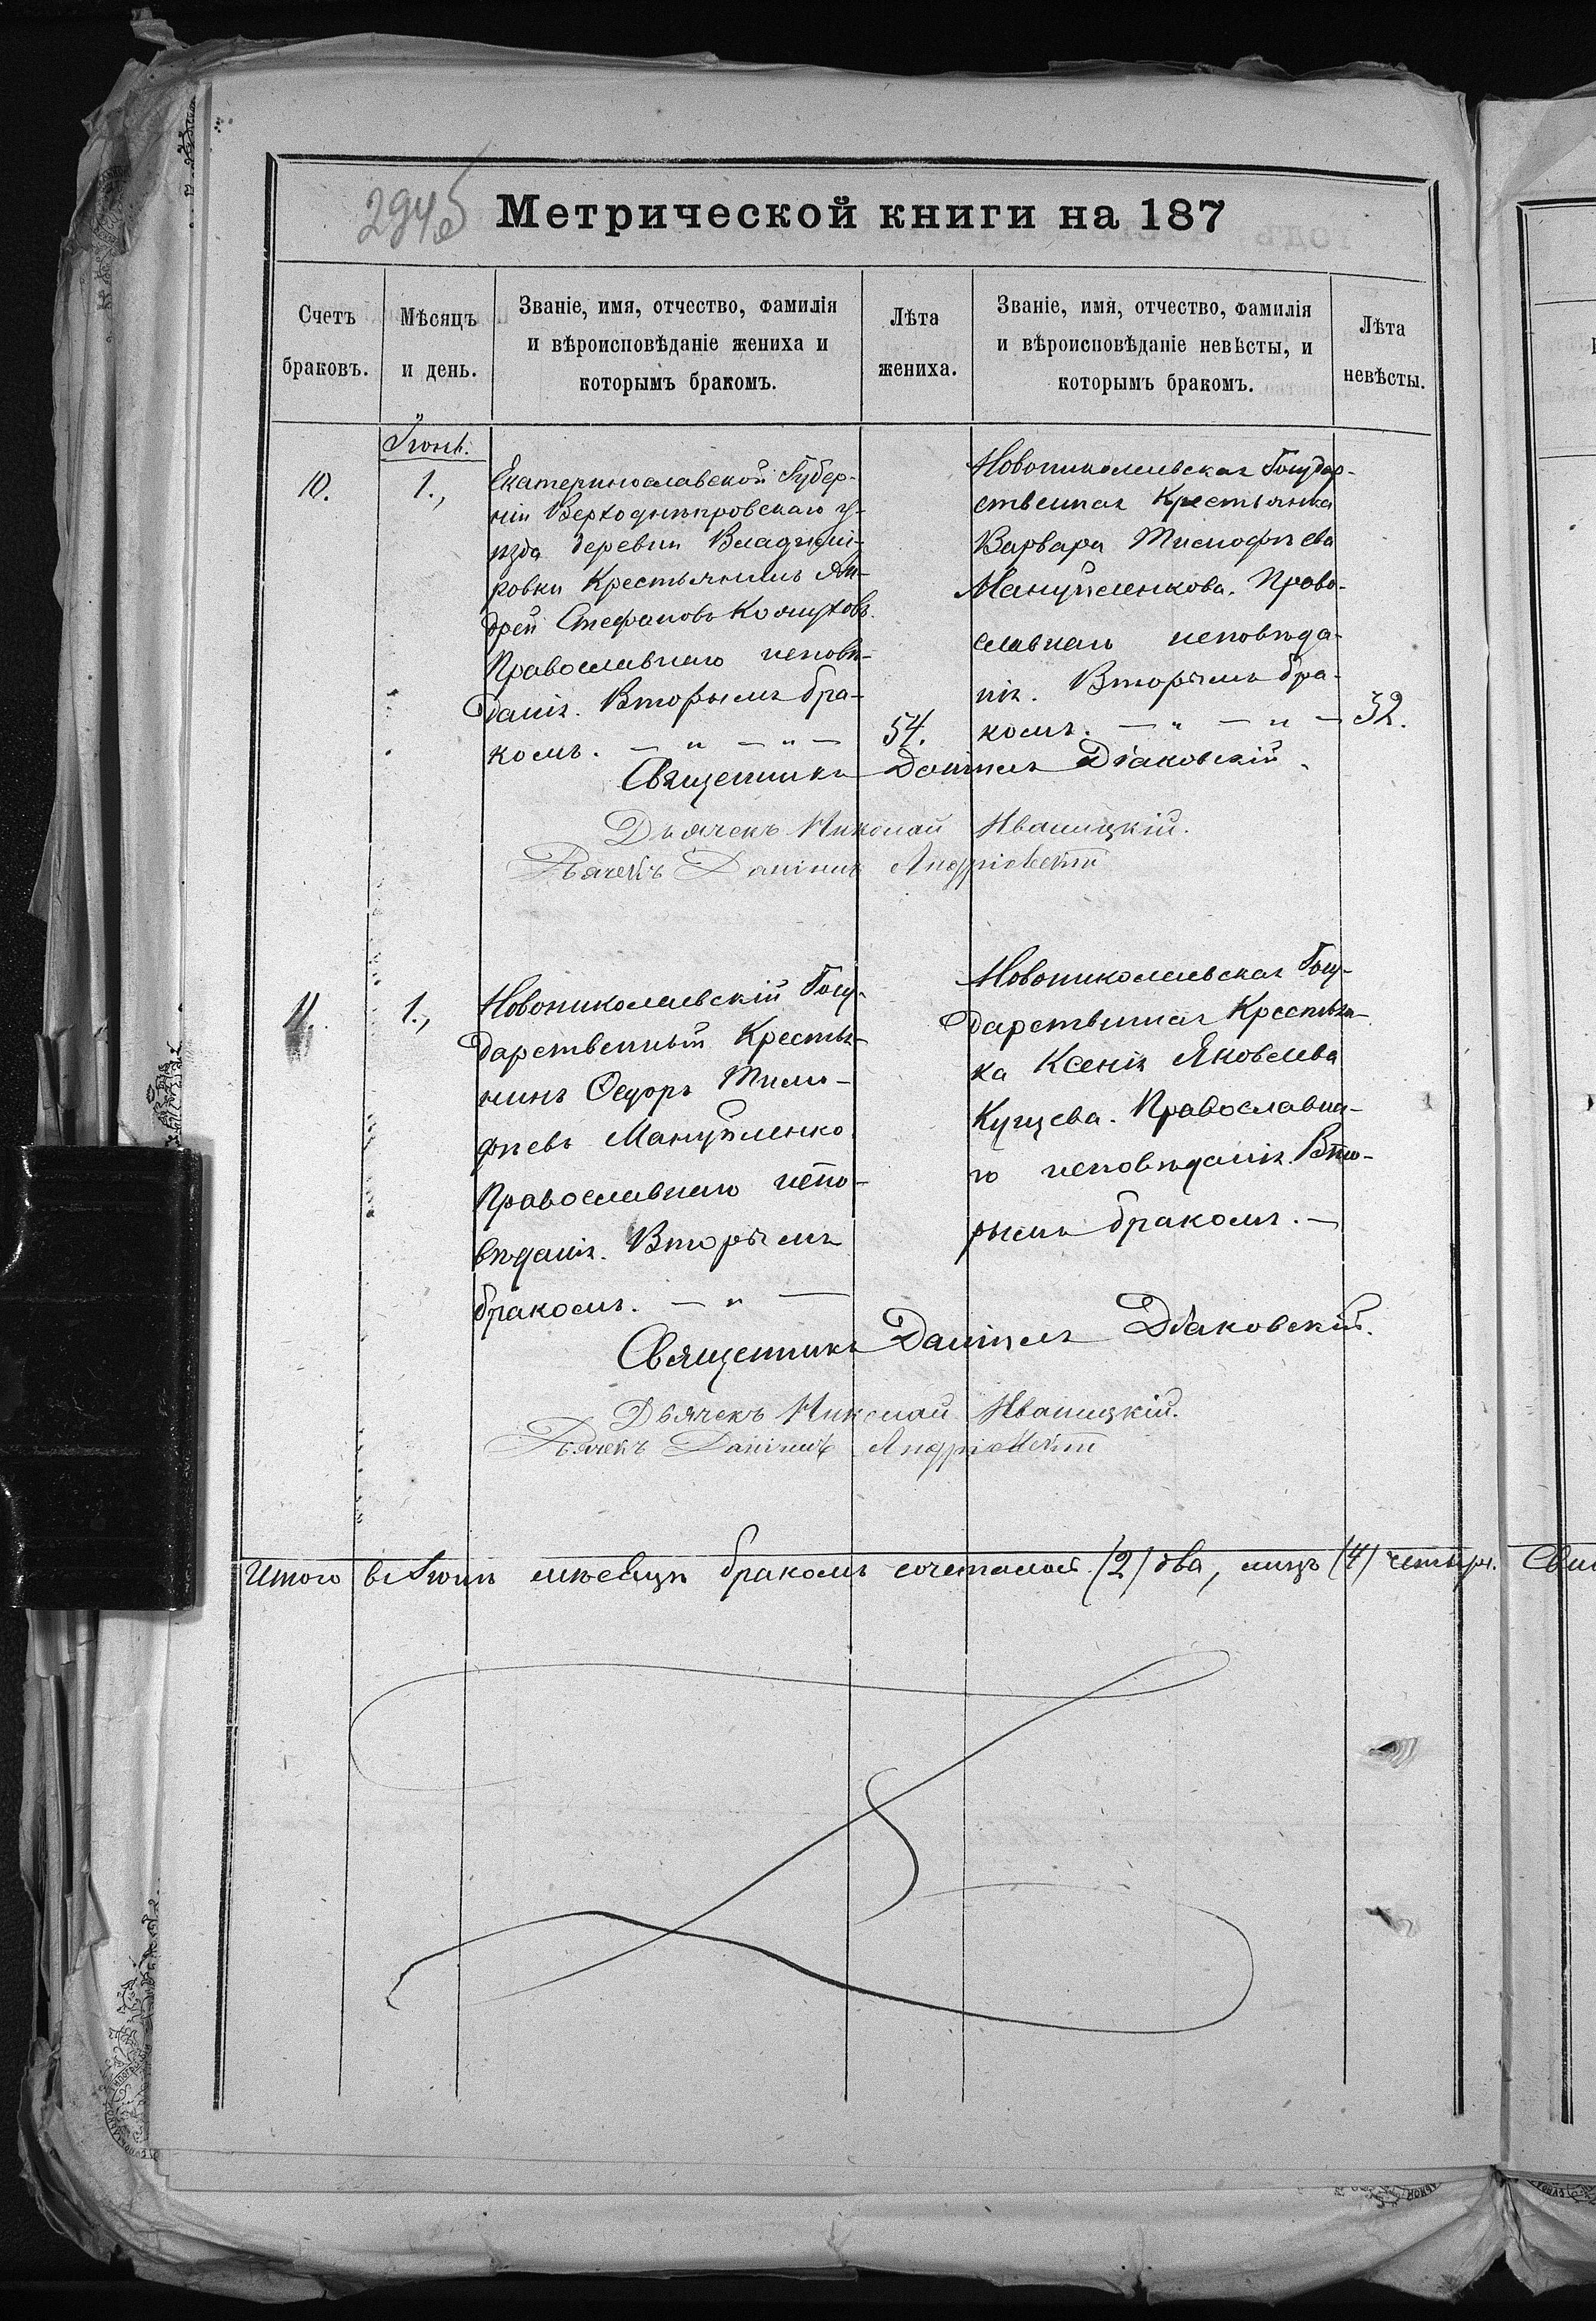 294об
Метрической книги на 187
Счетъ браковъ.
Мѣсяцъ и день.
Званіе, имя, отчество, фамилія
и вѣроисповѣданіе жениха и
которымъ бракомъ.
Лѣта жениха.
Званіе, имя, отчество, фамилія
и вѣроисповѣданіе невѣсты, и
которымъ бракомъ.
Лѣта невѣсты.
Іюнь.
10.
1.,
Екатеринославской Губер-
ніи Верходнѣпровскаго у-
ѣзда деревни Владими-
ровки Крестьянинъ Ан-
дрей Стефановъ
Православнаго исповѣ-
данія. Вторымъ бра-
комъ. — „ — „ —
54.
Новониколаевская Государ-
ственная Крестьянка
Варвара Тимофѣева
Мануйленкова. Право-
славнаго исповѣда-
нія. Вторымъ бра-
комъ. — „ — „ —
32.
Священникъ Даніилъ Діаковскій.
Дьячекъ Николай Иваницкій.
Дьячекъ Даніилъ
11.
1.,
Новониколаевскій Госу-
дарственный Крестья-
нинъ Ѳедоръ Тимо-
фѣевъ Мануйленко
Православнаго испо-
вѣданія. Вторымъ
бракомъ. — „ —
Новониколаевская Госу-
дарственная Крестьян-
ка Ксенія Яковлева
Куцева. Православна-
го исповѣданія. Вто-
рымъ бракомъ. —
Священникъ Даніилъ Діаковскій.
Дьячекъ Николай Иваницкій.
Дьячекъ Даніилъ
Итого въ Іюнѣ мѣсяцѣ бракомъ сочеталось /2/ два, лицъ /4/ четыре.